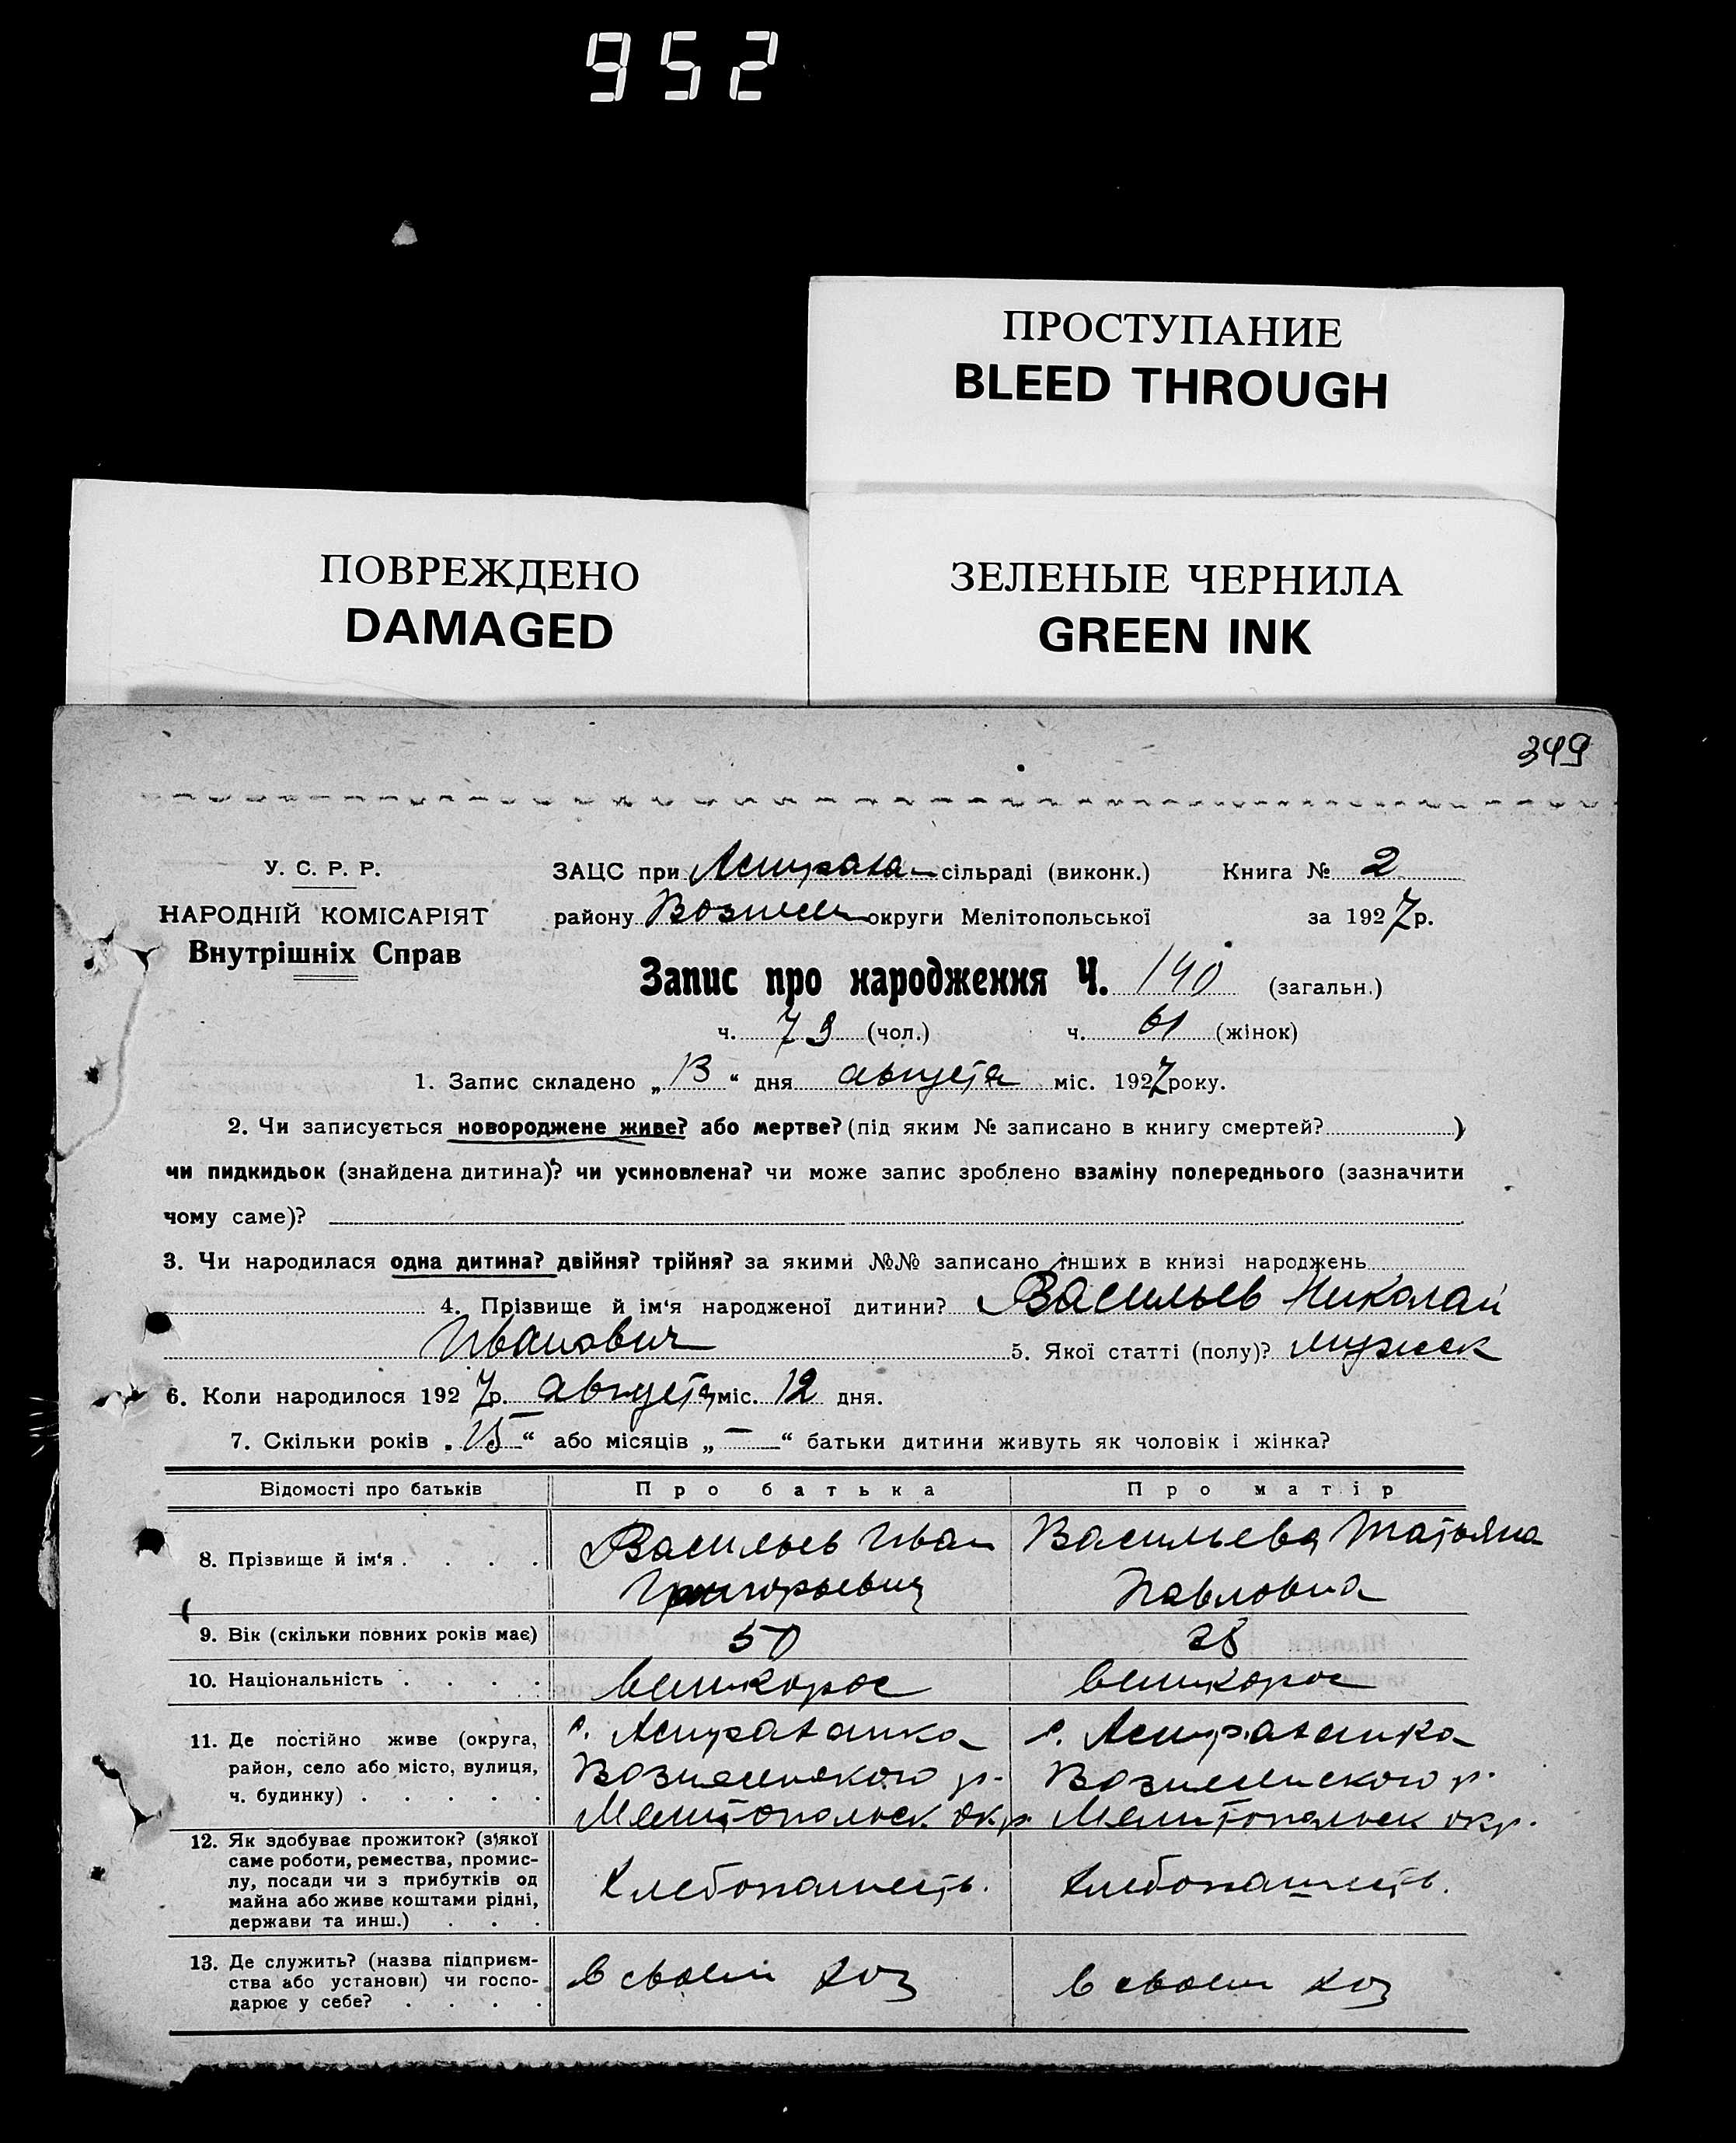 952
ПРОСТУПАНИЕ
BLEED THROUGH
ПОВРЕЖДЕНО
DAMAGED
ЗЕЛЕНЫЕ ЧЕРНИЛА
GREEN INK
349
У. С. Р. Р.
НАРОДНІЙ КОМІСАРІЯТ
Внутрішніх Справ
ЗАЦС при Астрахан сільраді (виконк.) Книга № 2
району Вознесен округи Мелітопольської за 1927 р.
Запис про народження Ч. 140 (загальн.)
ч. 79 (чол.) ч. 61 (жінок)
1. Запис складено „13“ дня августа міс. 1927 року.
2. Чи записується новороджене живе? або мертве? (під яким № записано в книгу смертей? )
чи пидкидьок (знайдена дитина)? чи усиновлена? чи може запис зроблено взаміну попереднього (зазначити
чому саме)?
3. Чи народилася одна дитина? двійня? трійня? за якими №№ записано інших в книзі народжень
4. Прізвище й ім'я народженої дитини? Васильев Николай
Иванович 5. Якої статті (полу)? мужск
6. Коли народилося 1927 р. августа міс. 12 дня.
7. Скільки років „ “ або місяців „—“ батьки дитини живуть як чоловік і жінка?
Відомості про батьків Про батька Про матір
8. Прізвище й ім'я . . . . Васильев Иван Васильева Татьяна
Григорьевич Павловна
9. Вік (скільки повних років має) 50 28
10. Національність . . . . великорос великорос
11. Де постійно живе (округа, с. Астраханка с. Астраханка
район, село або місто, вулиця, Вознесенского р. Вознесенского р.
ч. будинку) . . . . . Мелитопольск окр. Мелитопольск окр.
12. Як здобуває прожиток? (з якої
саме роботи, ремества, промис-
лу, посади чи з прибутків од Хлебопашеств. Хлебопашеств.
майна або живе коштами рідні,
держави та инш.) . . .
13. Де служить? (назва підприєм-
ства або установи) чи госпо- в своем хоз в своем хоз
дарює у себе? . . . .